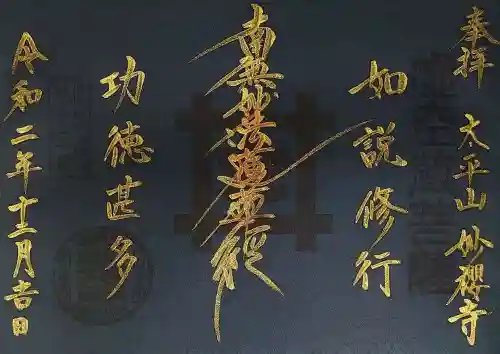 奉拝 太平山 妙櫻寺
如説修行
南無妙法蓮華経
功徳甚多
令和二年十二月吉日